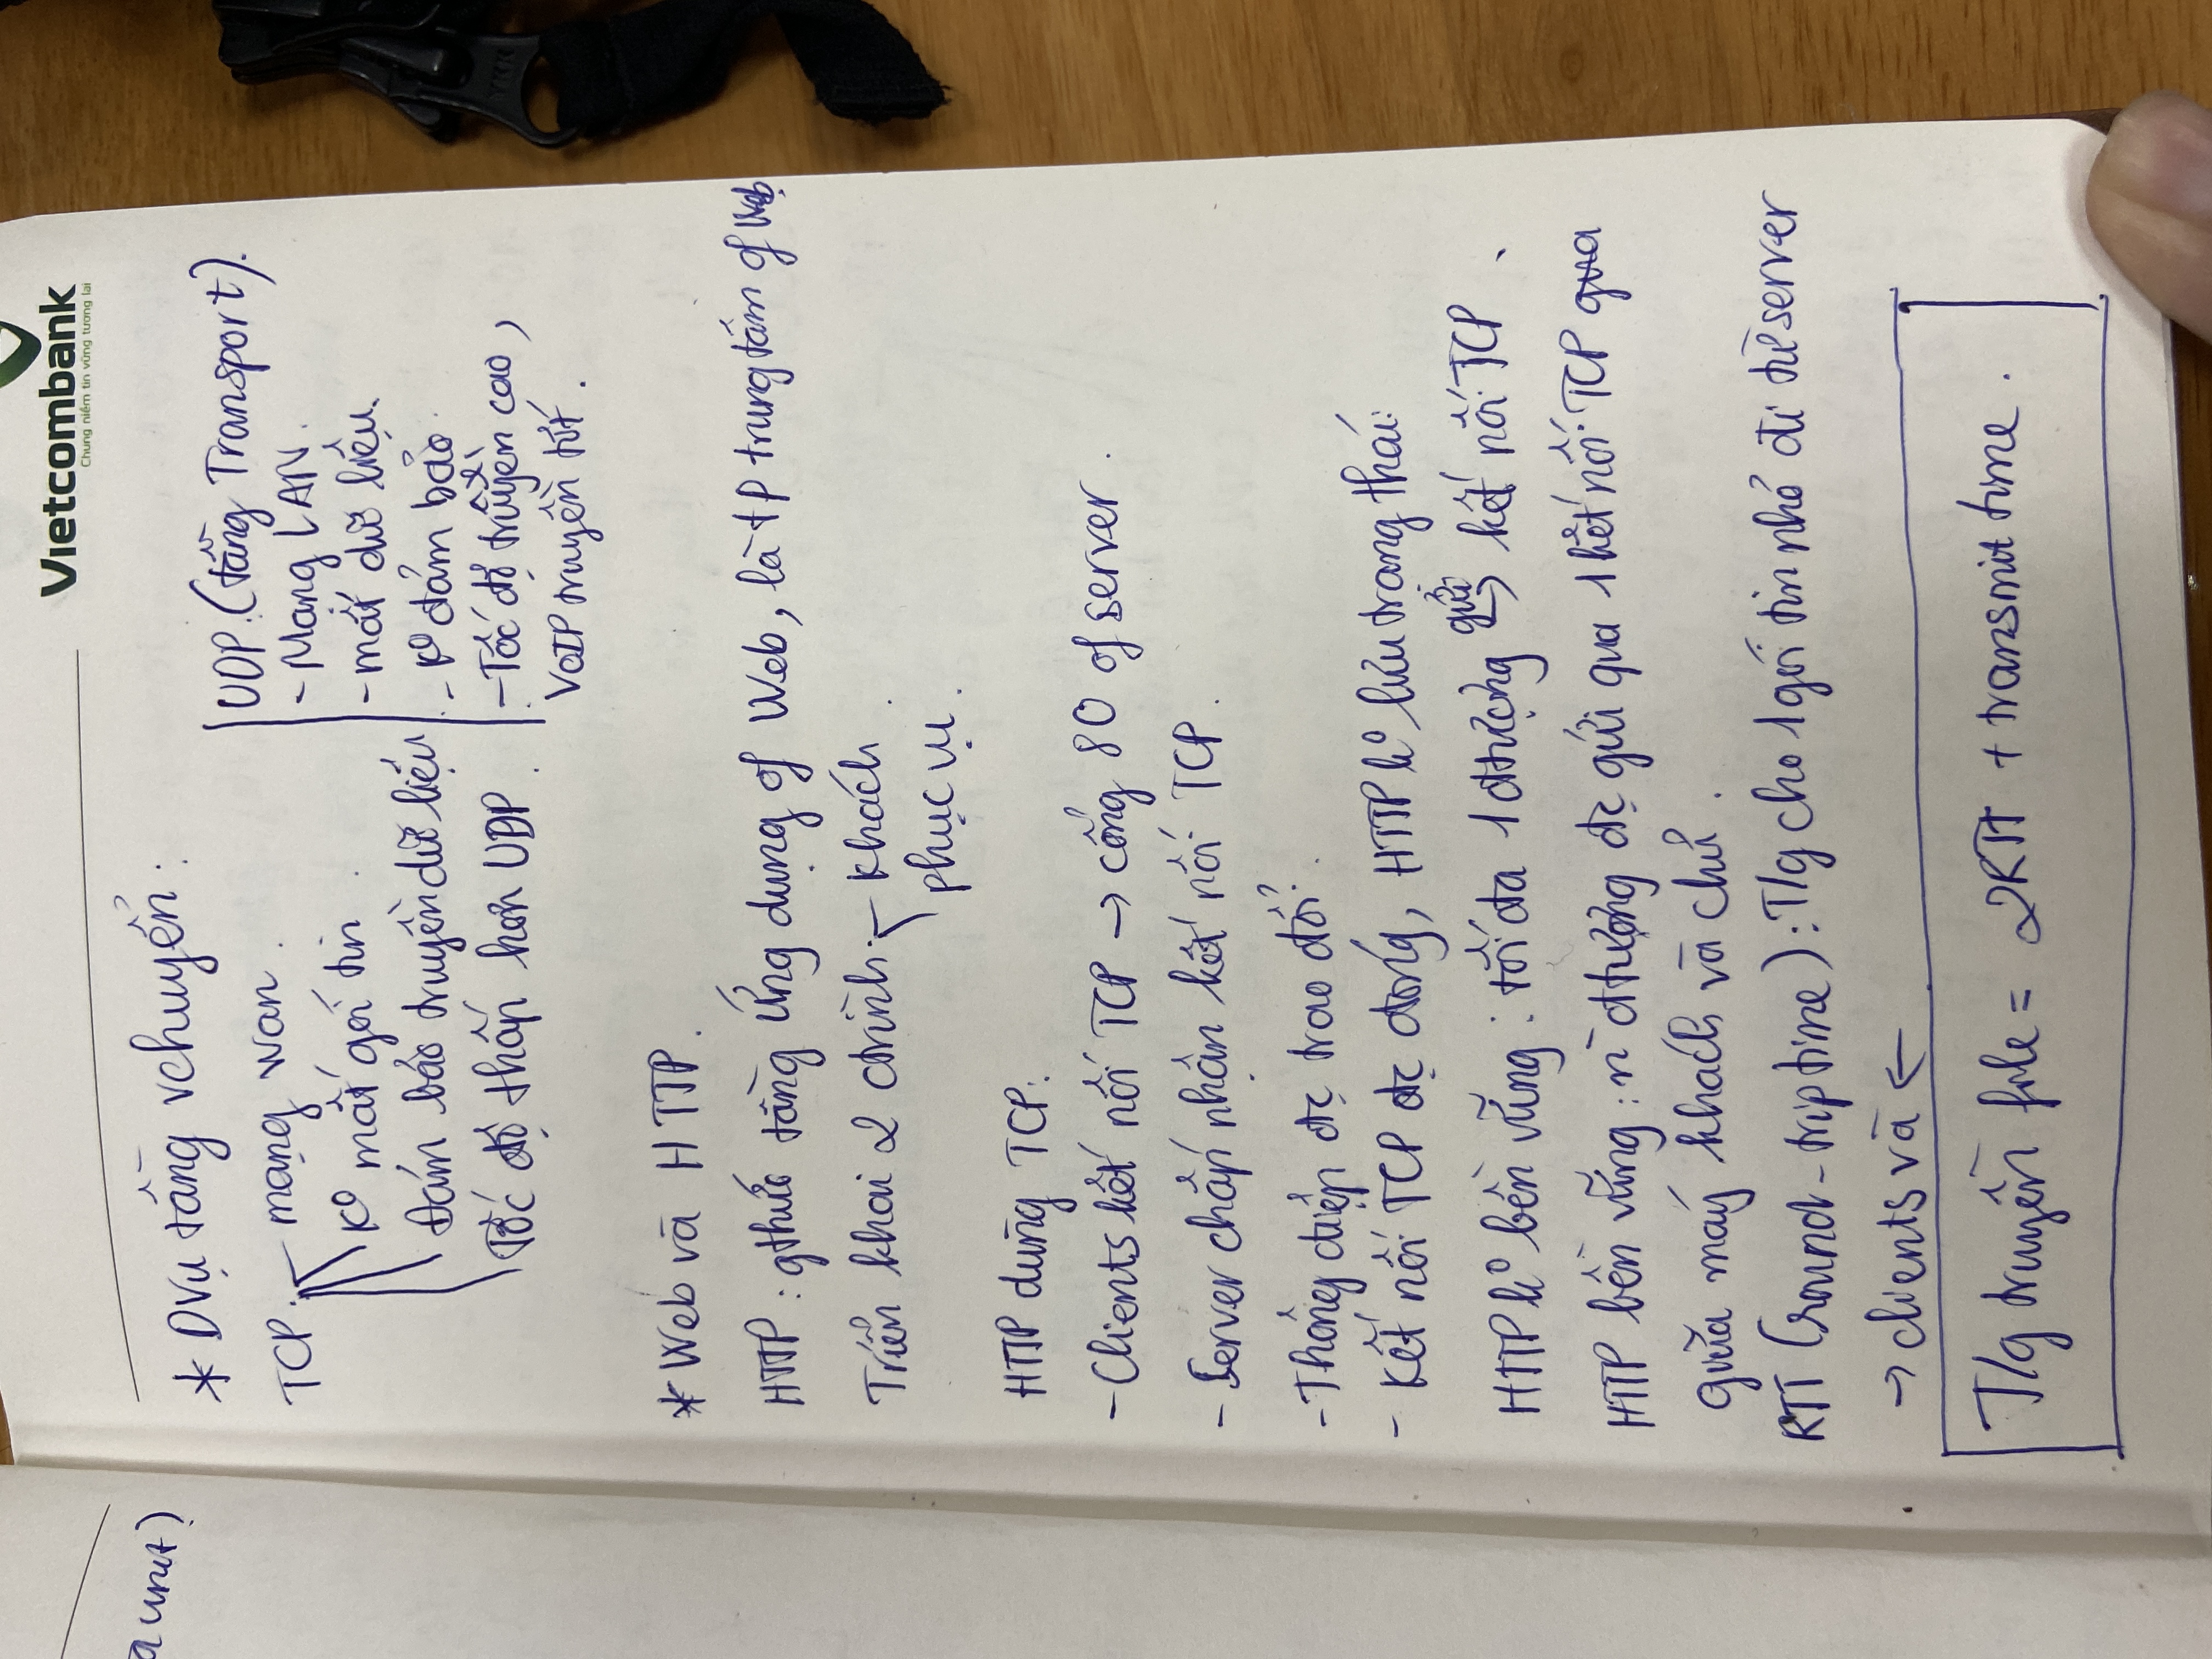 Vietcombank
Chung niềm tin vững tương lai
a unit)
* DVụ tầng vchuyển:
TCP: - mạng wan.
K° mất gói tin.
Đảm bảo truyền dữ liệu
Tốc độ thấp hơn UDP.
UDP. (tầng Transport).
- Mạng LAN.
- mất dữ liệu.
- K° đảm bảo
- Tốc độ truyền cao,
VoIP truyền tốt.
* Web và HTTP.
HTTP: gthức tầng ứng dụng of Web, là tp trung tâm of Web
Triển khai 2 ctrình: - Khách.
phục vụ.
HTTP dùng TCP:
- Clients kết nối TCP → cổng 80 of server.
- Server chấp nhận kết nối TCP.
- Thông điệp đc trao đổi.
- Kết nối TCP đc đóng, HTTP k° lưu trạng thái
gửi
HTTP k° bền vững: tối đa 1 đtượng → kết nối TCP.
HTTP bền vững: n` đtượng đc gửi qua 1 kết nối TCP qua
giữa máy khách và chủ.
RTT (round-trip time): T/g cho 1 gói tin nhỏ đi từ server
→ clients và ←
T/g truyền file = 2RTT + transmit time.